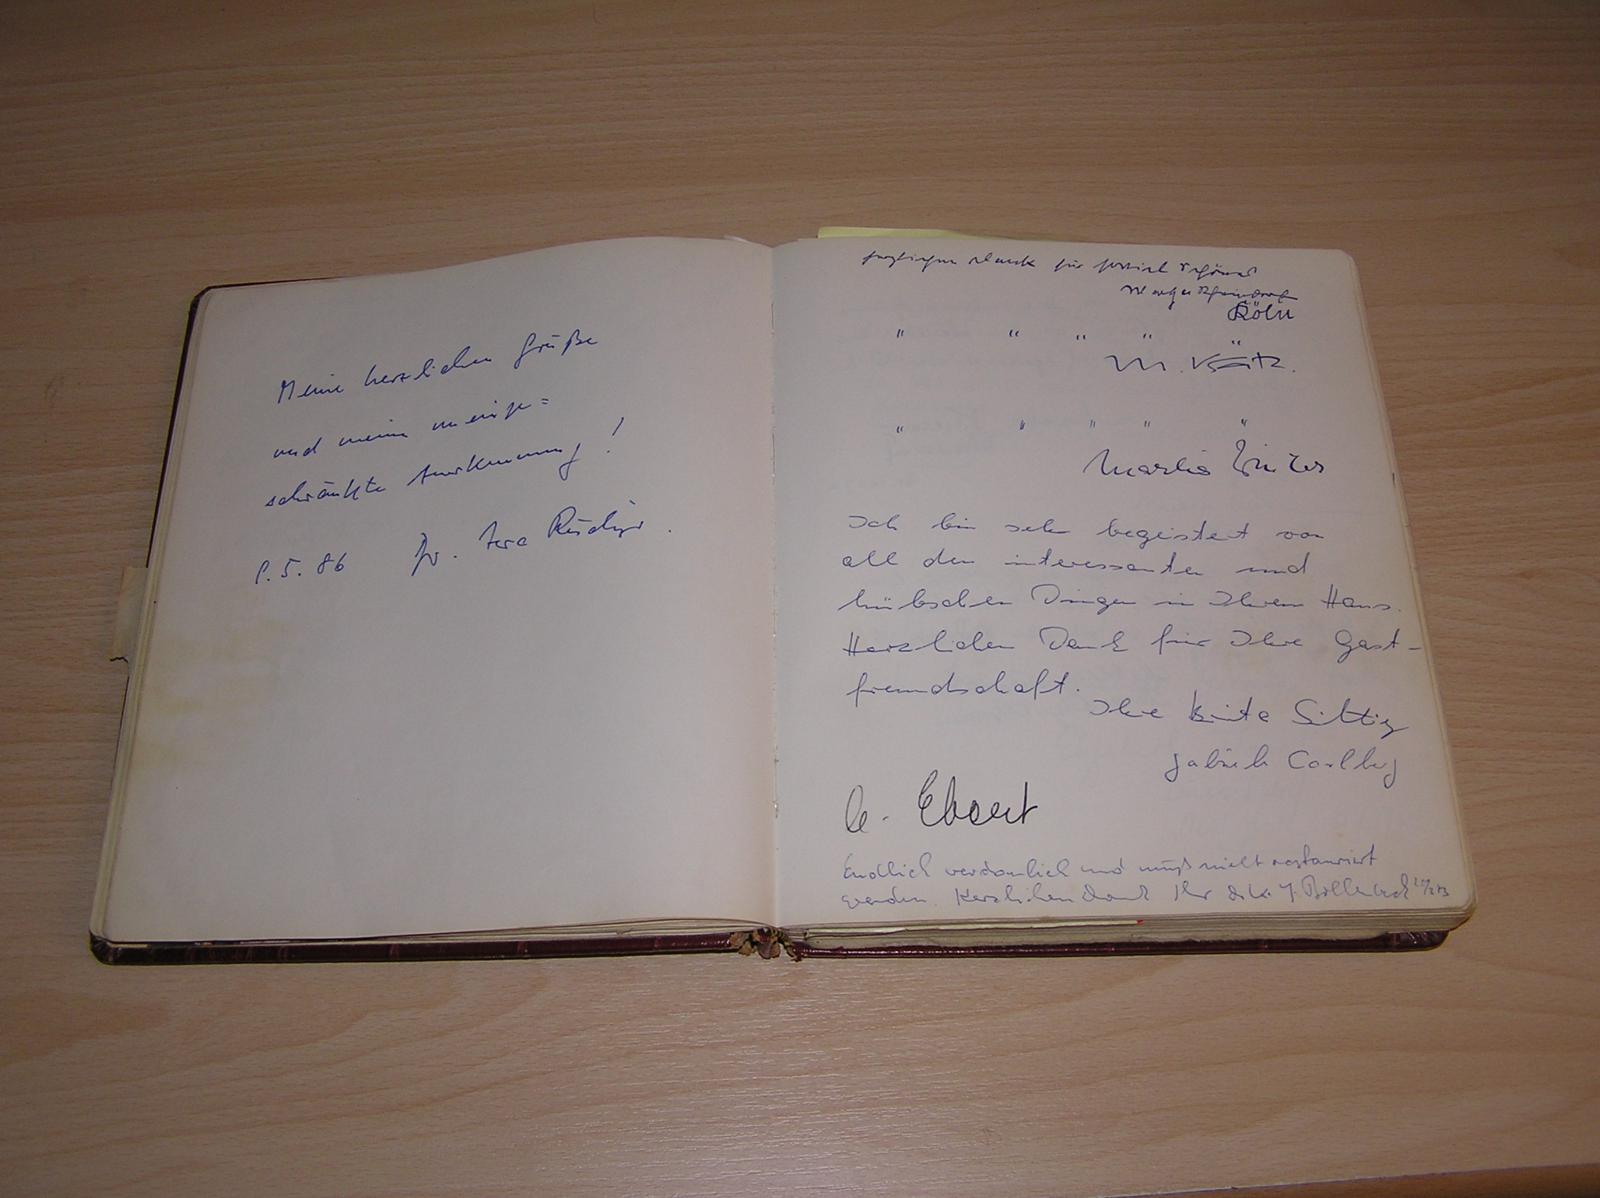 Meine herzlichen Grüße
und meine uneinge=
schränkte Anerkennung!
8.5.86 Dr. Vera Rüdiger.
Dank für soviel Schönes
Köln
" " " "
M.
" " " " "
Marlis
Ich bin sehr begeistert von
all den interessanten und
hübschen Dingen in Ihrem Haus.
Herzlichen Dank für Ihre Gast-
freundschaft.
Ihre Brita Sittig
Gabriele Carlberg
Ebert
Endlich verdaulich und muß nicht restauriert
werden. Herzlichen Dank Ihr